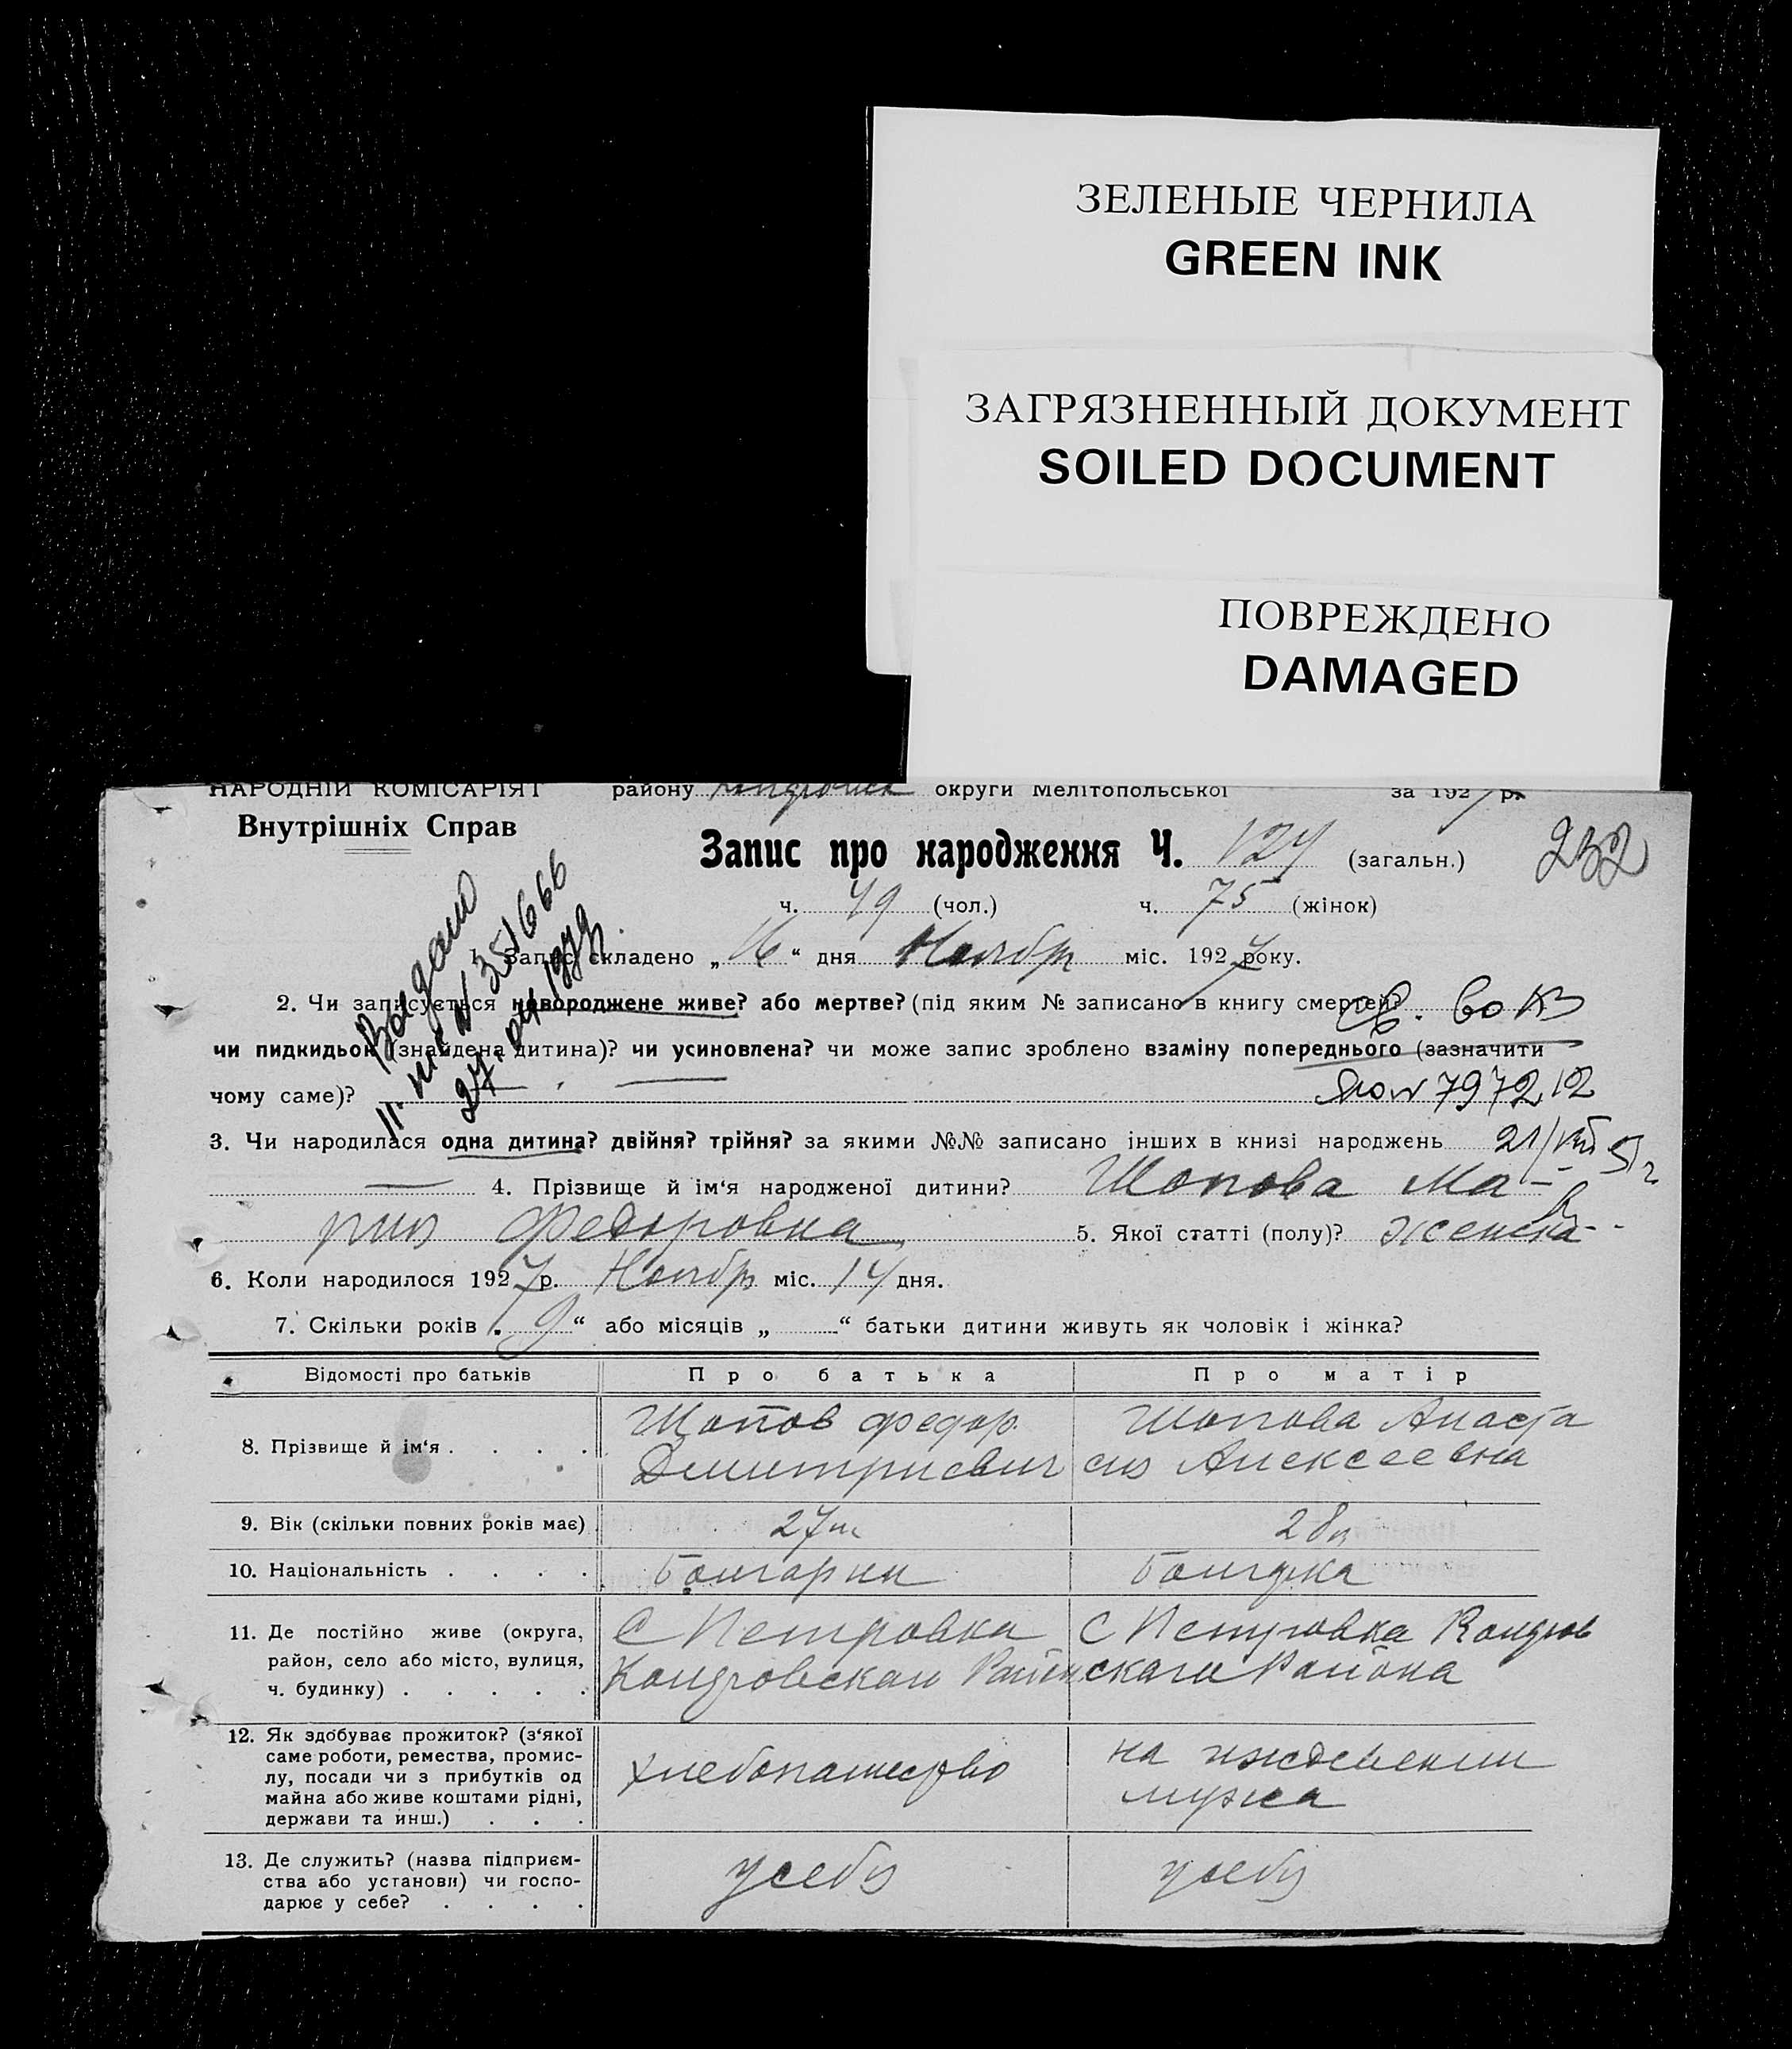 ЗЕЛЕНЫЕ ЧЕРНИЛА
GREEN INK
ЗАГРЯЗНЕННЫЙ ДОКУМЕНТ
SOILED DOCUMENT
ПОВРЕЖДЕНО
DAMAGED
НАРОДНІЙ КОМІСАРІЯТ району округи Мелітопольської за 1927 р.
Внутрішніх Справ
Запис про народження Ч. 124 (загальн.) 232
ч. 49 (чол.) ч. 75 (жінок)
Выдано
351666
1. Запис складено „16“ дня Ноябр міс. 1927 року.
2. Чи записується новороджене живе? або мертве? (під яким № записано в книгу смертей?
чи пидкидьок (знайдена дитина)? чи усиновлена? чи може запис зроблено взаміну попереднього (зазначити
чому саме)? 797212
3. Чи народилася одна дитина? двійня? трійня? за якими №№ записано інших в книзі народжень 21/VIII 51 г
4. Прізвище й ім‘я народженої дитини? Шопова Ма-
рия Федоровна 5. Якої статті (полу)? женска
6. Коли народилося 1927 р. Ноябр міс. 14 дня.
7. Скільки років „9“ або місяців „ “ батьки дитини живуть як чоловік і жінка?
Відомості про батьків Про батька Про матір
8. Прізвище й ім‘я . . . . Шопов Федор Дмитриевич Шопова Анастасия Алексеевна
9. Вік (скільки повних років має) 27 л 28 л
10. Національність . . . . Болгарин Болгарка
11. Де постійно живе (округа,
район, село або місто, вулиця,
ч. будинку) . . . . .
С Петровка
С Петровка
12. Як здобуває прожиток? (з‘якої
саме роботи, ремества, промис-
лу, посади чи з прибутків од
майна або живе коштами рідні,
держави та инш.) . . .
хлебопашество
на иждевении
мужа
13. Де служить? (назва підприєм-
ства або установи) чи госпо-
дарює у себе? . . . .
у себя
у себя